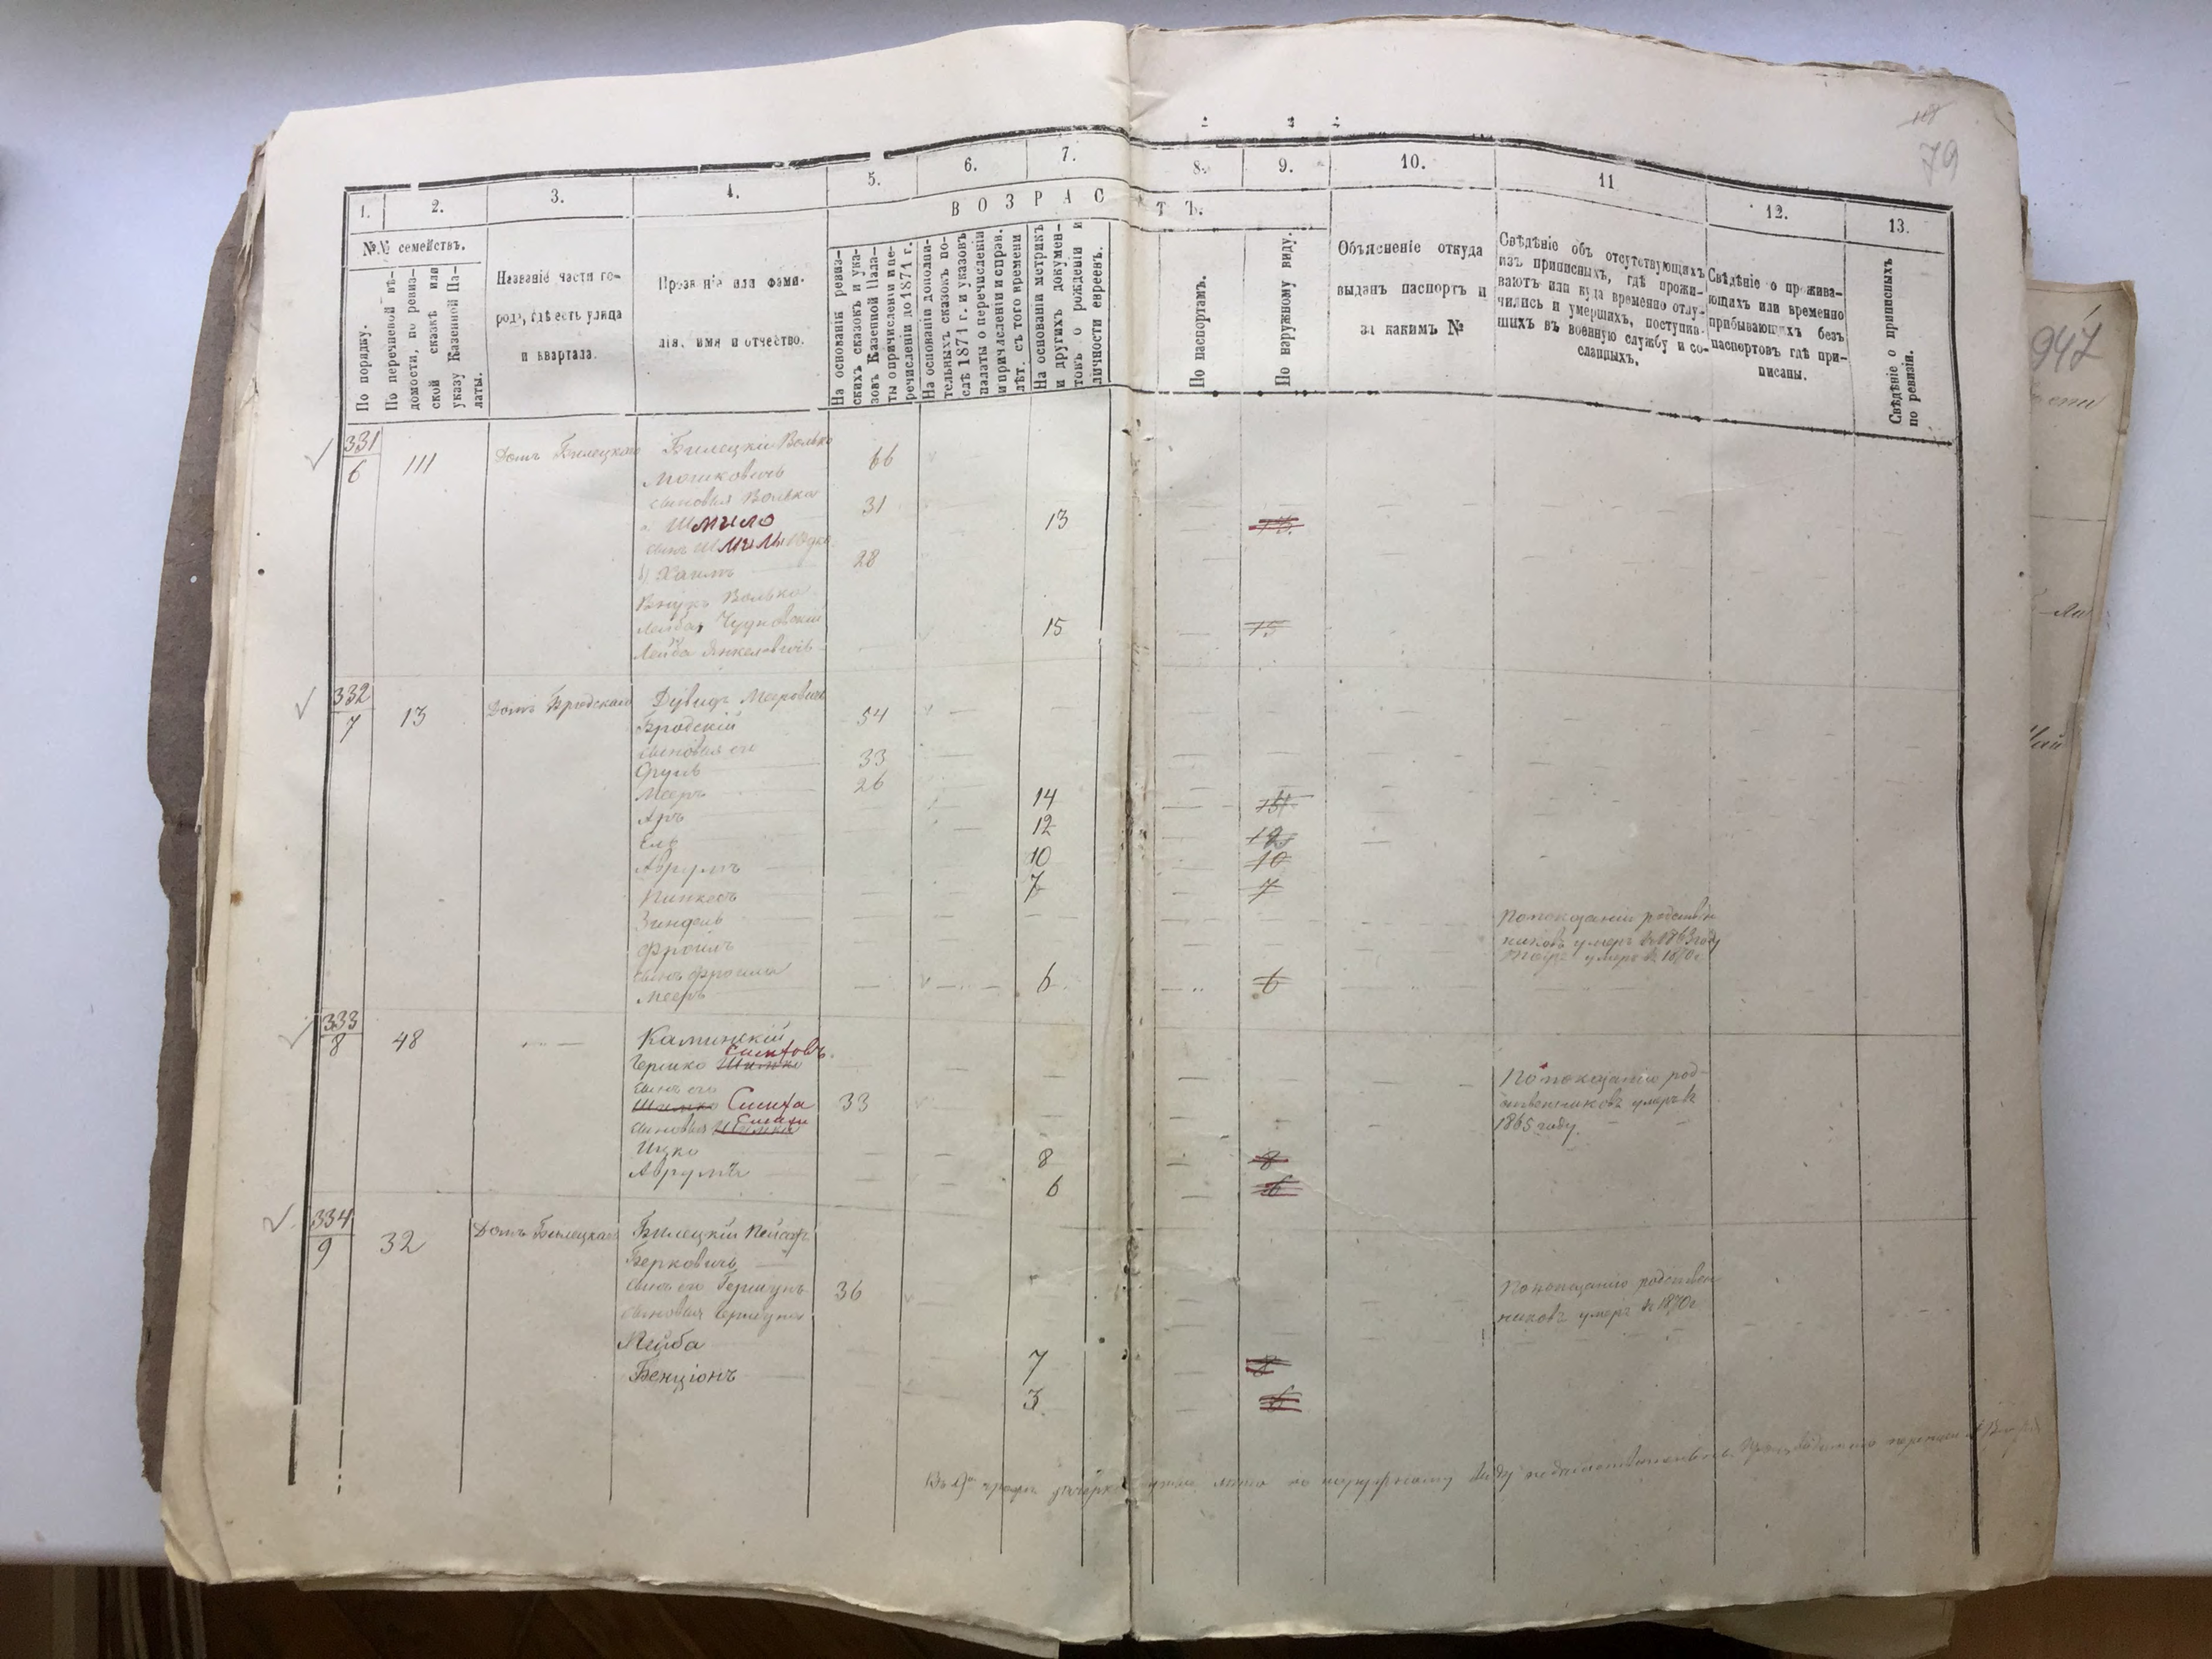 79
1.
2.
3.
4.
5.
6.
7.
8.
9.
10.
11
12.
13.
ВОЗРАСТЪ.
№№ семействъ.
По порядку.
По перечневой вѣ-
домости, по ревиз-
ской сказкѣ или
указу Казенной Па-
латы.
Названіе части го-
рода, гдѣ есть улица
и квартала.
Прозваніе или фами-
лія, имя и отчество.
На основаніи ревиз-
скихъ сказокъ и ука-
зовъ Казенной Пала-
ты о причисленіи и пе-
речисленіи до 1871 г.
На основаніи дополни-
тельныхъ сказокъ по-
слѣ 1871 г. и указовъ
палаты о перечисленіи
и причисленіи и справ.
лѣт. съ того времени
На основаніи метрикъ
и другихъ докумен-
товъ о рожденіи и
личности евреевъ.
По паспортамъ.
По наружному виду.
Объясненіе откуда
выданъ паспортъ и
за какимъ №
Свѣдѣніе объ отсутствующихъ
изъ приписныхъ, гдѣ прожи-
ваютъ или куда временно отлу-
чились и умершихъ, поступив-
шихъ въ военную службу и со-
сланныхъ.
Свѣдѣніе о прожива-
ющихъ или временно
прибывающихъ безъ
паспортовъ гдѣ при-
писаны.
Свѣдѣніе о приписныхъ
по ревизіи.
331
6
111
Домъ Билецкаго
Билецкій Волько
Мошковичъ
66
сыновья Волька
а. Шмило
31
13
сынъ Шмилы Ицко
б) Хаимъ
28
Внукъ Волька
Лейба, Чудновскій
15
15
Лейба Янкелевичъ
332
7
13
Домъ Бродскаго
Дувидъ Мееровичъ
Бродскій
54
сыновья его
Сруль
33
Мееръ
26
Аръ
14
Ель
12
Аврумъ
10
10
Пинкасъ
7
7
Зиндель
По показанію родствен
никовъ умеръ въ 1863 году
Фроимъ
умеръ въ 1870 г
сынъ Фроима
Мееръ
6
6
333
8
48
Каминскій
Гершко Шимко Симховъ
сынъ его
Шимко Симха
33
сыновья Шимки Симхи
Ицко
8
8
Аврумъ
6
6
По показанію род-
ственниковъ умеръ въ
1865 году.
334
9
32
Домъ Билецкаго
Билецкій Пейсахъ
Берковичъ
сынъ его Гершунъ
36
По показанію родствен
никовъ умеръ въ 1870 г
сыновья Гершуна
Лейба
7
8
Бенціонъ
3
6
947